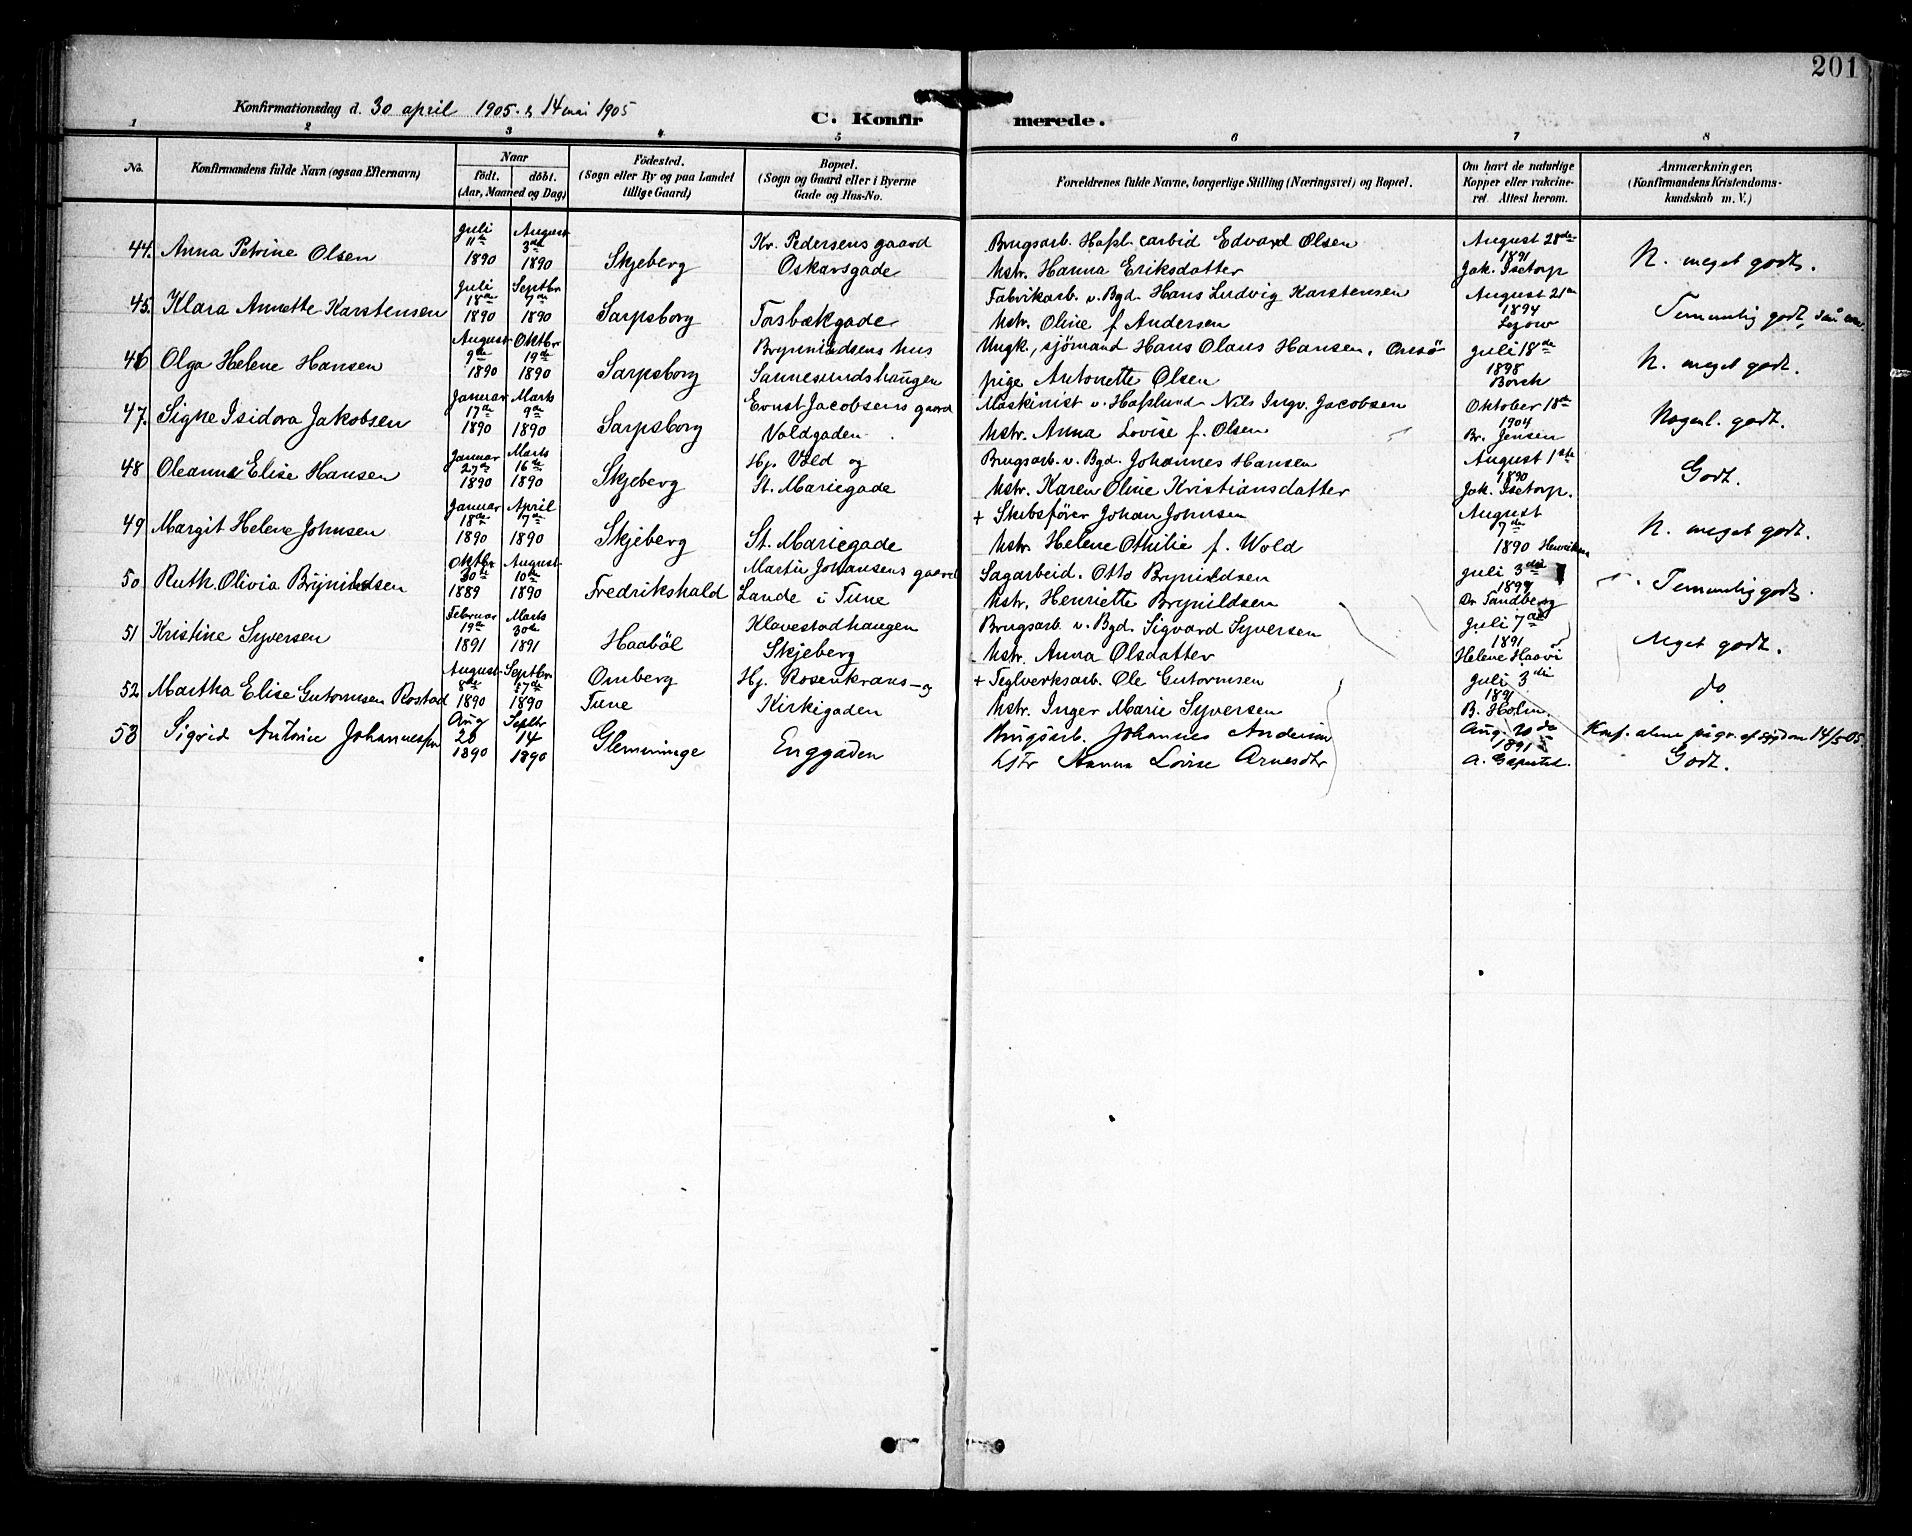 201
Konfirmationsdag d. 30 april 1905. & 14 mai 1905
C. Konfirmerede.
1 2 3 4 5 6 7 8
No.
Konfirmandens fulde Navn (ogsaa Efternavn)
Naar
födt. döbt.
(Aar, Maaned og Dag)
Födested.
(Sogn eller By og paa Landet
tillige Gaard)
Bopæl.
(Sogn og Gaard eller i Byerne
Gade og Hus-No.
Forældrenes fulde Navne, borgerlige Stilling (Næringsvei) og Bopæl.
Om havt de naturlige
Kopper eller vakcine-
ret. Attest herom.
Anmærkninger.
(Konfirmandens Kristendoms-
kundskab m. V.)
Juli August Kr. Pedersens gaard Brugsarb. Hafsl. carbid Edvard Olsen August 28de
44. Anna Petrine Olsen 11te 3die Skjeberg 1891 N. meget godt.
1890 1890 Oskarsgade Hstr. Hanna Eriksdatter Jak. Isetorp
Juli Septbr. Fabrikarb. v. Bgd. Hans Ludvig Karstensen August 21de
45. Klara Annette Karstensen 18de 7de Sarpsborg 1894 Temmelig godt,
1890 1890 Torsbækgade Hstr. Oline f. Andersen Lezow
August Oktbr. Brynildsens hus Ungk., sjömand Hans Olaus Hansen, Onsö Juli 18de
46 Olga Helene Hansen 9de 19de Sarpsborg 1898 N. meget godt.
1890 1890 Sannesundshaugen pige Antonette Olsen Borch
Januar Marts Ernst Jacobsens gaard Maskinist v. Hafslund Nils Ingv. Jacobsen Oktober 18de
47. Signe Isidora Jakobsen 17de 9de Sarpsborg 1904 Nogenl. godt.
1890 1890 Voldgaden Hstr. Anna Lovise f. Olsen Br. Jensen
Januar Marts Hj. Vold og Brugsarb. v. Bgd. Johannes Hansen August 1ste
48 Oleanna Elise Hansen 27de 16de Skjeberg 1890 Godt.
1890 1890 St. Mariegade Hstr. Karen Oline Kristiansdatter Jak. Isetorp.
Januar April + Skibsförer Johan Johnsen August
49 Margit Helene Johnsen 18de 7de Skjeberg 7de N. meget godt.
1890 1890 St. Mariegade Hstr. Helene Othilie f. Wold 1890 Henriksen
Oktbr. August Martin Johansens gaard Sagarbeid. Otto Brynildsen Juli 3die
50 Ruth Olivia Brynildsen 30te 10de Fredrikshald 1899 Temmelig godt.
1889 1890 Lande i Tune Hstr. Henriette Brynildsen Dr Sandberg
Februar Marts Klavestadhaugen Brugsarb. v. Bgd. Sigvard Syversen Juli 7de
51 Kristine Syversen 19de 30te Haaböl 1891 Meget godt.
1891 1891 Skjeberg Hstr. Anna Olsdatter Helene Haavi
August Septbr. Omberg Hj. Rosenkrans- og + Teglverksarb. Ole Gutormsen Juli 3die
52 Martha Elise Gutormsen Rostad 8de 17de 1891 do
1890 1890 Tune Kirkegaden Hstr. Inger Marie Syversen B. Holm
Aug Septbr Johannes Andersen Aug. 20de Konf. alene pågr. af sygdom 14/5 05.
53 Sigrid Antonie Johannessen 20 14 Glemminge Enggaden 1891
1890 1890 Hstr Anna Lovise Arnesdtr Godt.